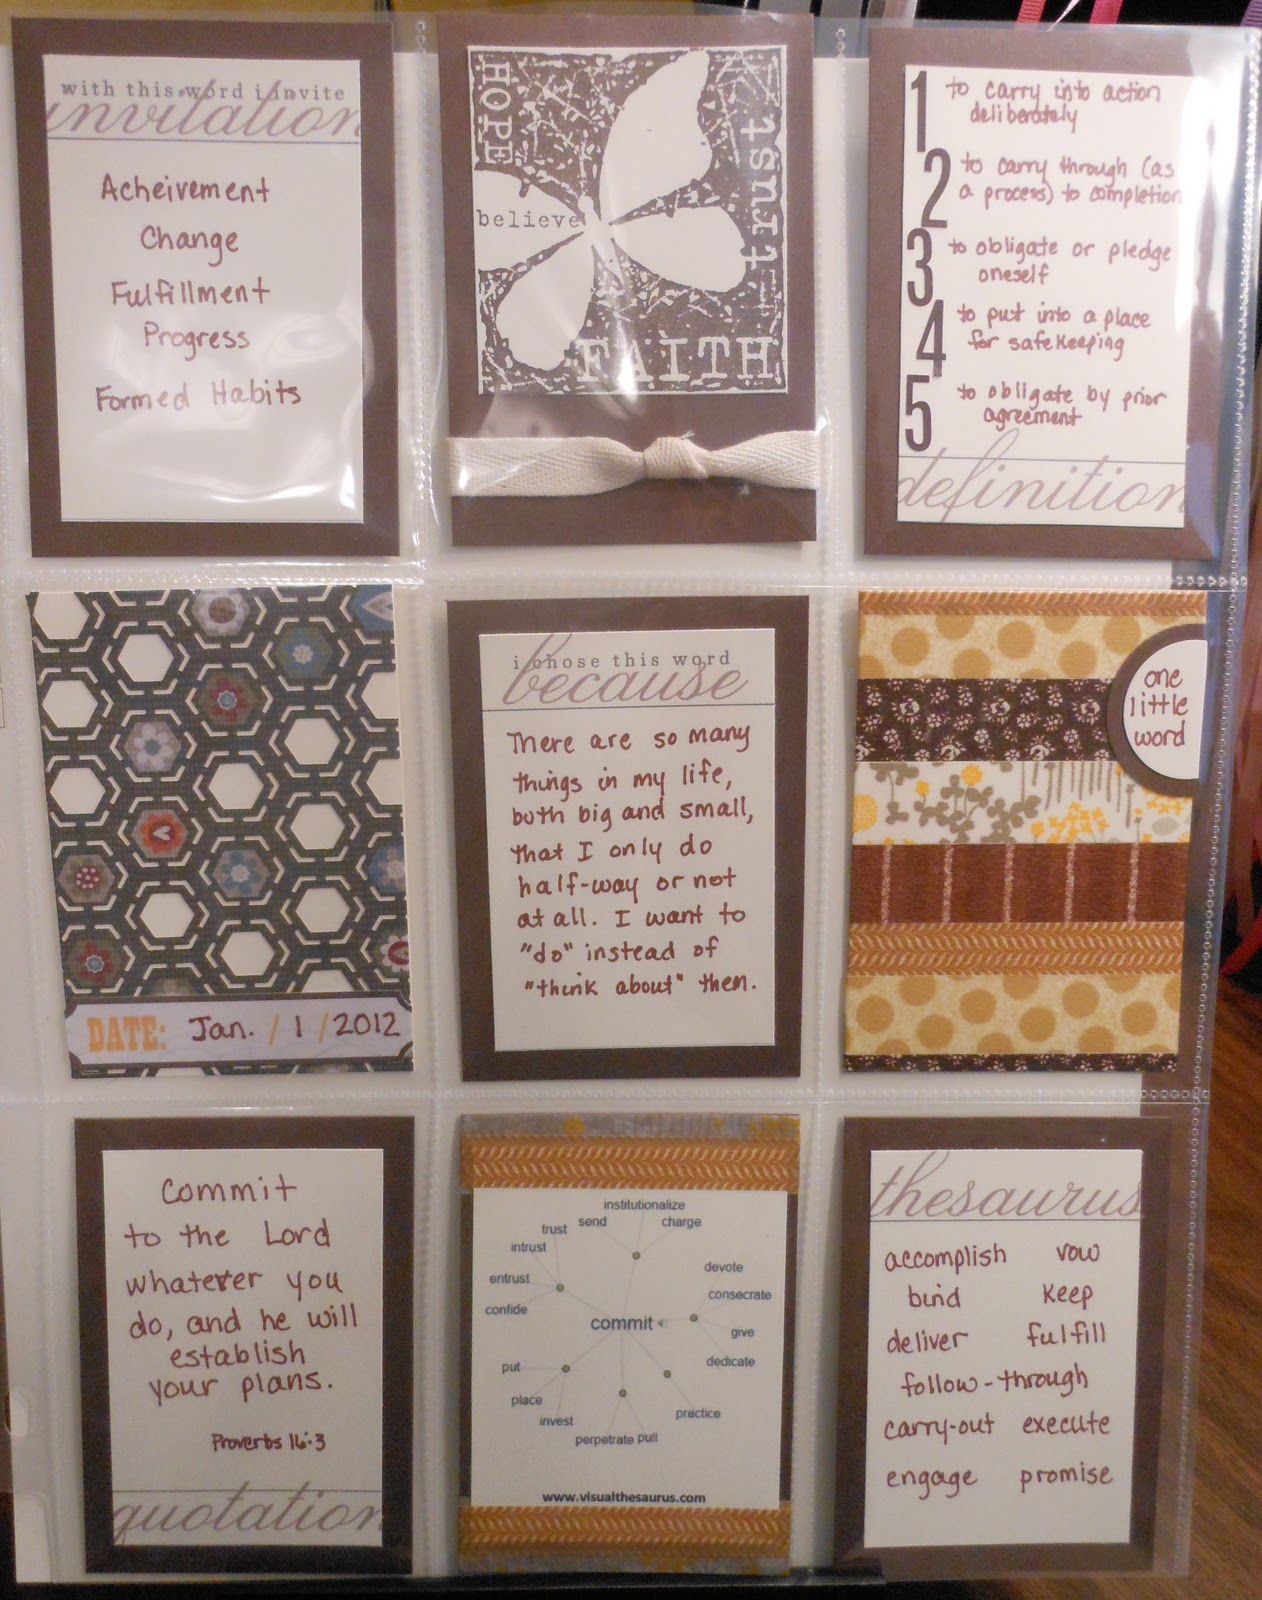 with this word i invite
invitation
Acheivement
Change
Fulfillment
Progress
Formed Habits
HOPE
trust
believe
FAITH
1 to carry into action
deliberately
2 to carry through (as
a process) to completion
3 to obligate or pledge
oneself
4 to put into a place
for safekeeping
5 to obligate by prior
agreement
definition
DATE: Jan. / 1 / 2012
i chose this word
because
There are so many
things in my life,
both big and small,
that I only do
half-way or not
at all. I want to
"do" instead of
"think about" them.
one
little
word
Commit
to the Lord
whatever you
do, and he will
establish
your plans.
Proverbs 16:3
quotation
institutionalize
send charge
trust
intrust
entrust
confide
devote
consecrate
commit
give
dedicate
put
place
invest
practice
perpetrate pull
www.visualthesaurus.com
thesaurus
accomplish vow
bind keep
deliver fulfill
follow-through
carry-out execute
engage promise